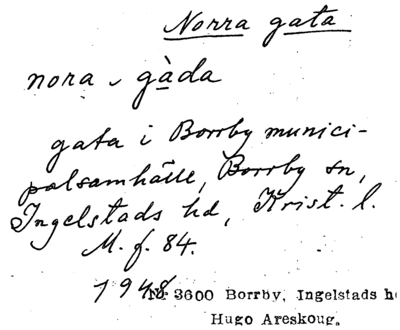 Norra gata
nora gàda
gata i Borrby munici-
palsamhälle, Borrby sn,
Ingelstads hd, Krist. l.
M. f. 84.
1948
3600 Borrby, Ingelstads h
Hugo Areskoug.